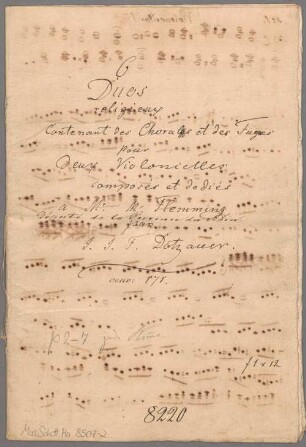 6
Duos
religieux
Contenant des Chorals et des Fugues
pour
Deux Violoncelles
composés et dediés
à Mr. M. Flemming
par
J. J. F. Dotzauer.
oeuv: 178.
p 2-7
f 1 x 12
8220
Mus.Schott.Ha 8507-2